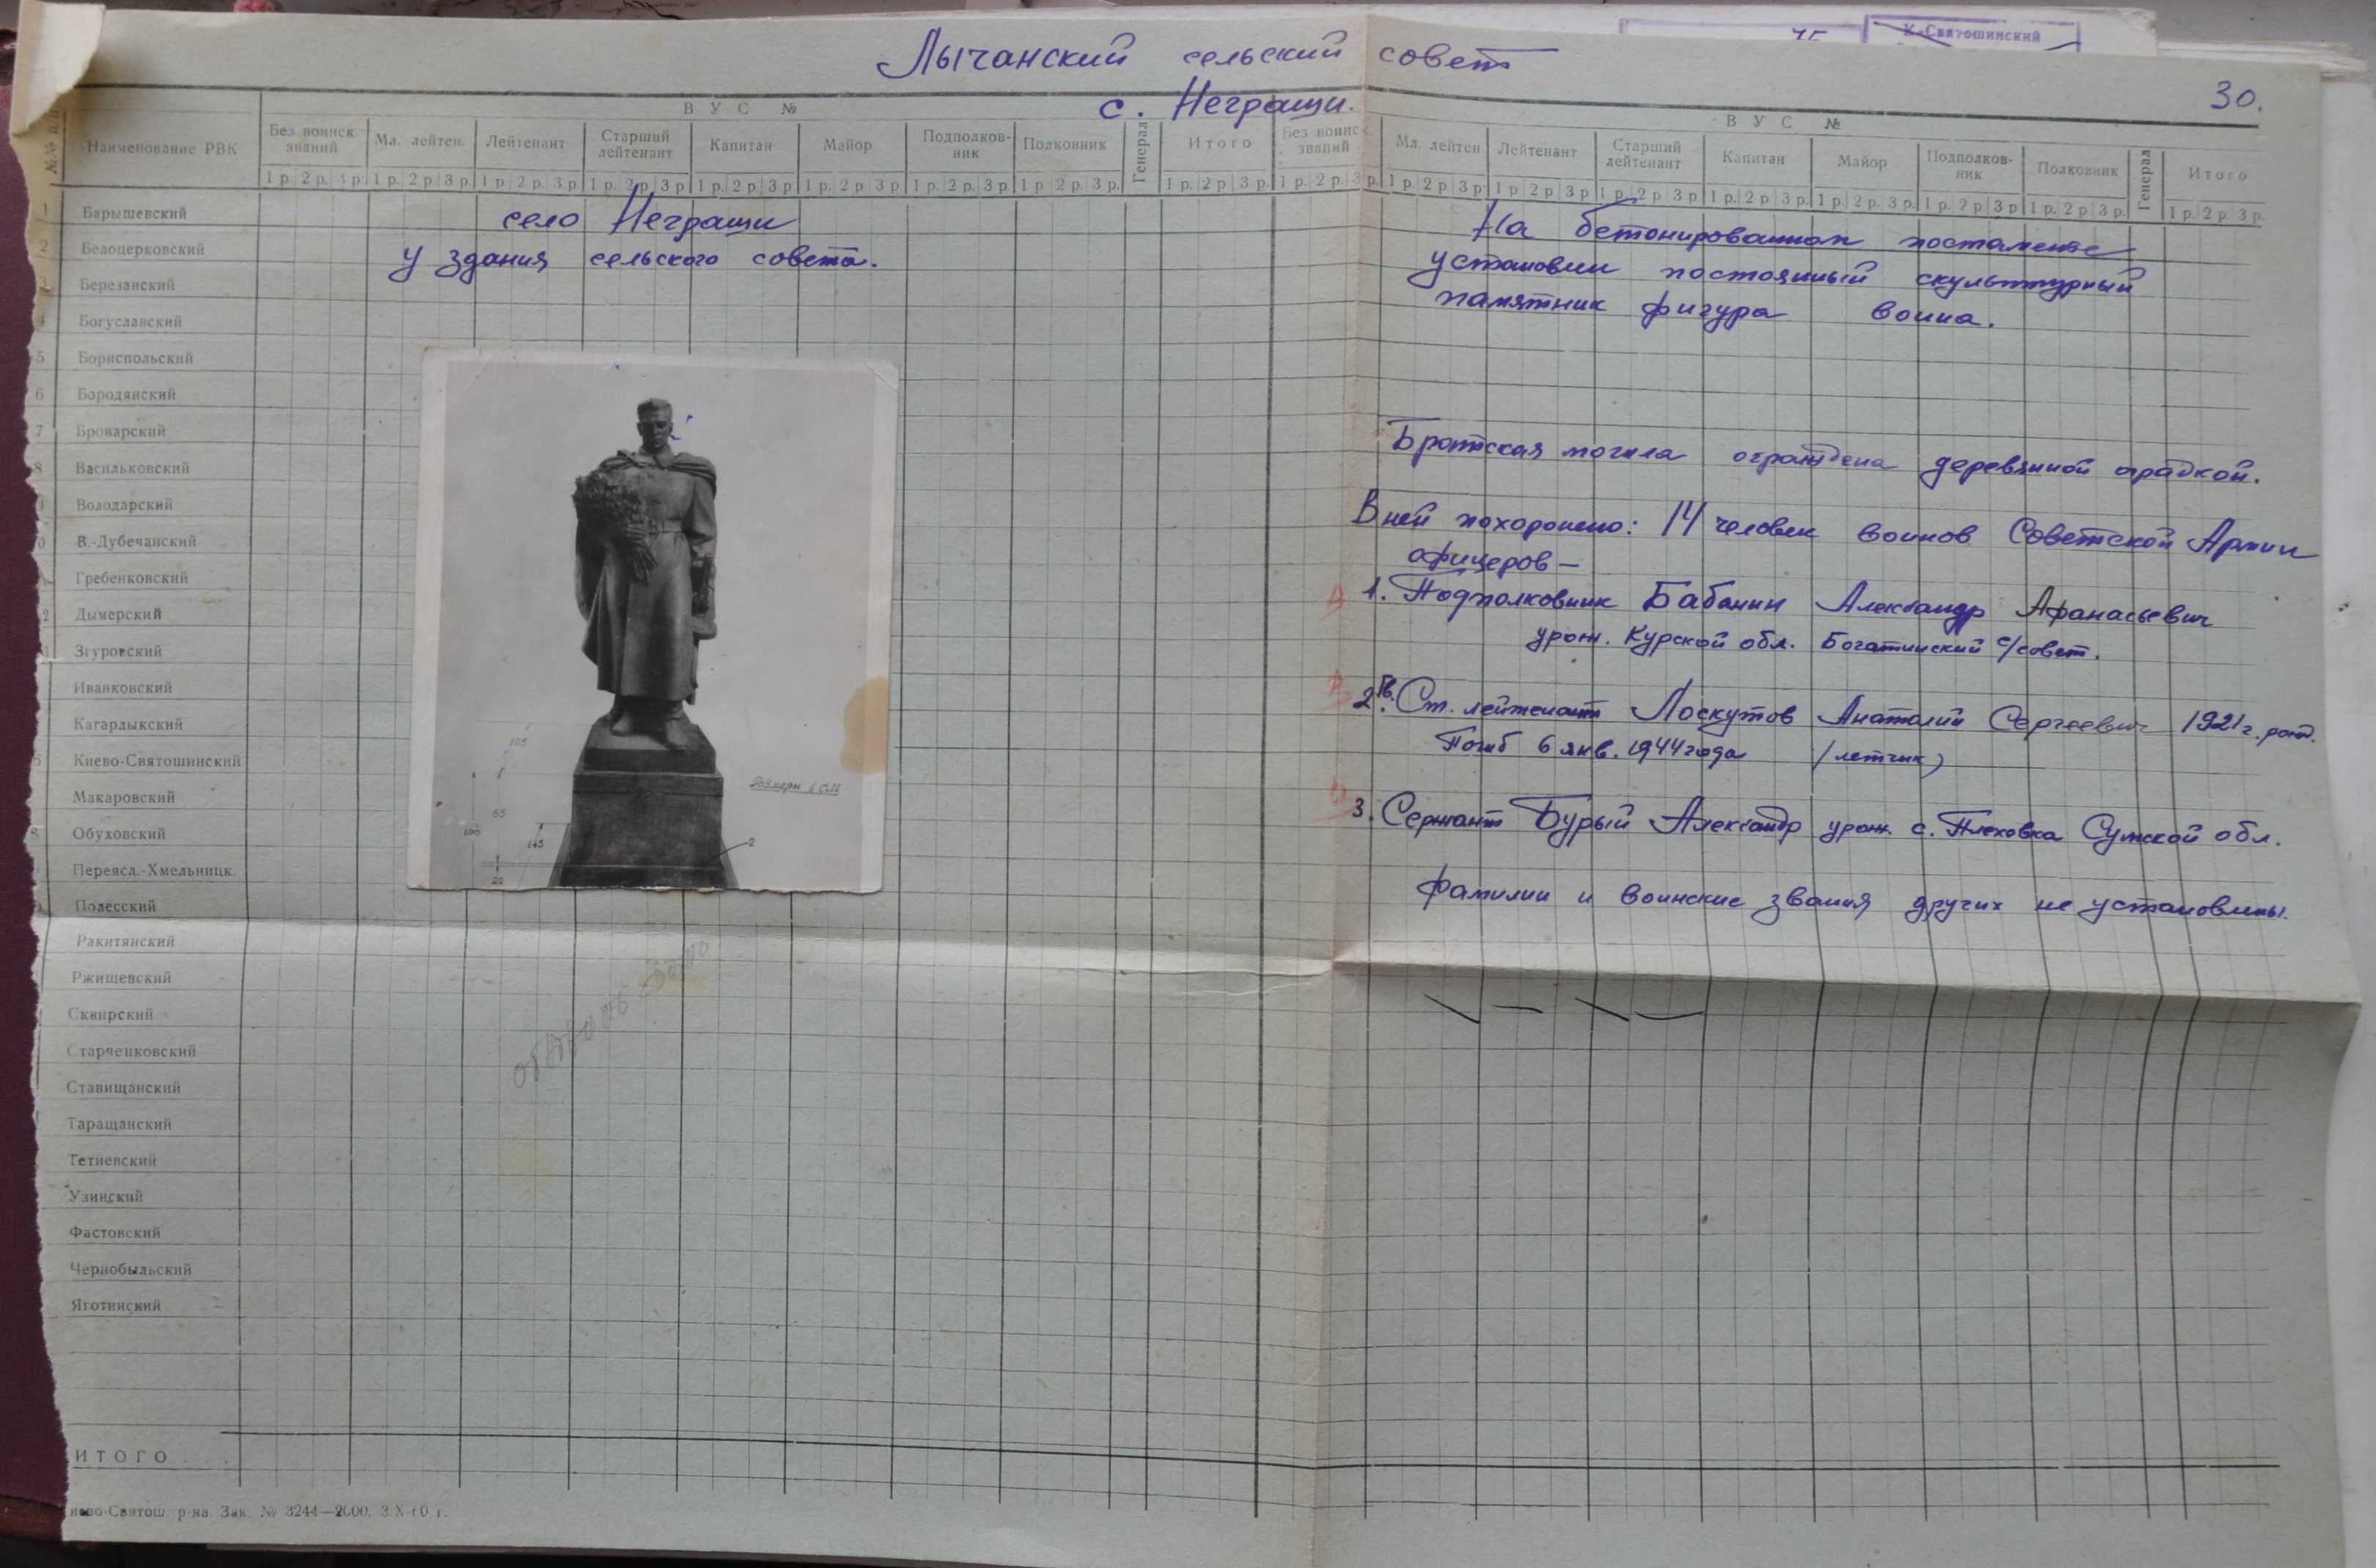 К-Святошинский
Лычанский сельский совет
30.
с. Неграши.
ВУС №
ВУС №
Наименование РВК
Без воинск. званий
Мл. лейтен.
Лейтенант
Старший лейтенант
Капитан
Майор
Подполков-ник
Полковник
Генерал
Итого
Без воинск. званий
Мл. лейтен.
Лейтенант
Старший лейтенант
Капитан
Майор
Подполков-ник
Полковник
Генерал
Итого
1 р. 2 р. 3 р. 1 р. 2 р. 3 р. 1 р. 2 р. 3 р. 1 р. 2 р. 3 р. 1 р. 2 р. 3 р. 1 р. 2 р. 3 р. 1 р. 2 р. 3 р. 1 р. 2 р. 3 р. 1 р. 2 р. 3 р.
1 р. 2 р. 3 р. 1 р. 2 р. 3 р. 1 р. 2 р. 3 р. 1 р. 2 р. 3 р. 1 р. 2 р. 3 р. 1 р. 2 р. 3 р. 1 р. 2 р. 3 р. 1 р. 2 р. 3 р. 1 р. 2 р. 3 р.
1 Барышевский
2 Белоцерковский
Березанский
4 Богуславский
5 Бориспольский
6 Бородянский
7 Броварский
8 Васильковский
Володарский
В.-Дубечанский
Гребенковский
2 Дымерский
Згуровский
Иванковский
Кагарлыкский
Киево-Святошинский
Макаровский
8 Обуховский
Переясл.-Хмельницк.
Полесский
Ракитянский
Ржищевский
Сквирский
Старченковский
Ставищанский
Таращанский
Тетиевский
Узинский
Фастовский
Чернобыльский
Яготинский
ИТОГО
село Неграши
у здания сельского совета.
Размеры в СМ
105
65
100
145
20
2
На бетонированном постаменте
установлен постоянный скульптурный
памятник фигура воина.
Братская могила ограждена деревянной оградкой.
В ней похоронено: 14 человек воинов Советской Армии
офицеров —
1. Подполковник Бабанин Александр Афанасьевич
урож. Курской обл. Богатинский с/совет.
2. Гв. Ст. лейтенант Лоскутов Анатолий Сергеевич 1921 г. рожд.
Погиб 6 янв. 1944 года (летчик)
3. Сержант Бурый Александр урож. с. Плеховка Сумской обл.
Фамилии и воинские звания других не установлены.
иево-Святош. р-на. Зак. № 3244—2000. 3.X-60 г.